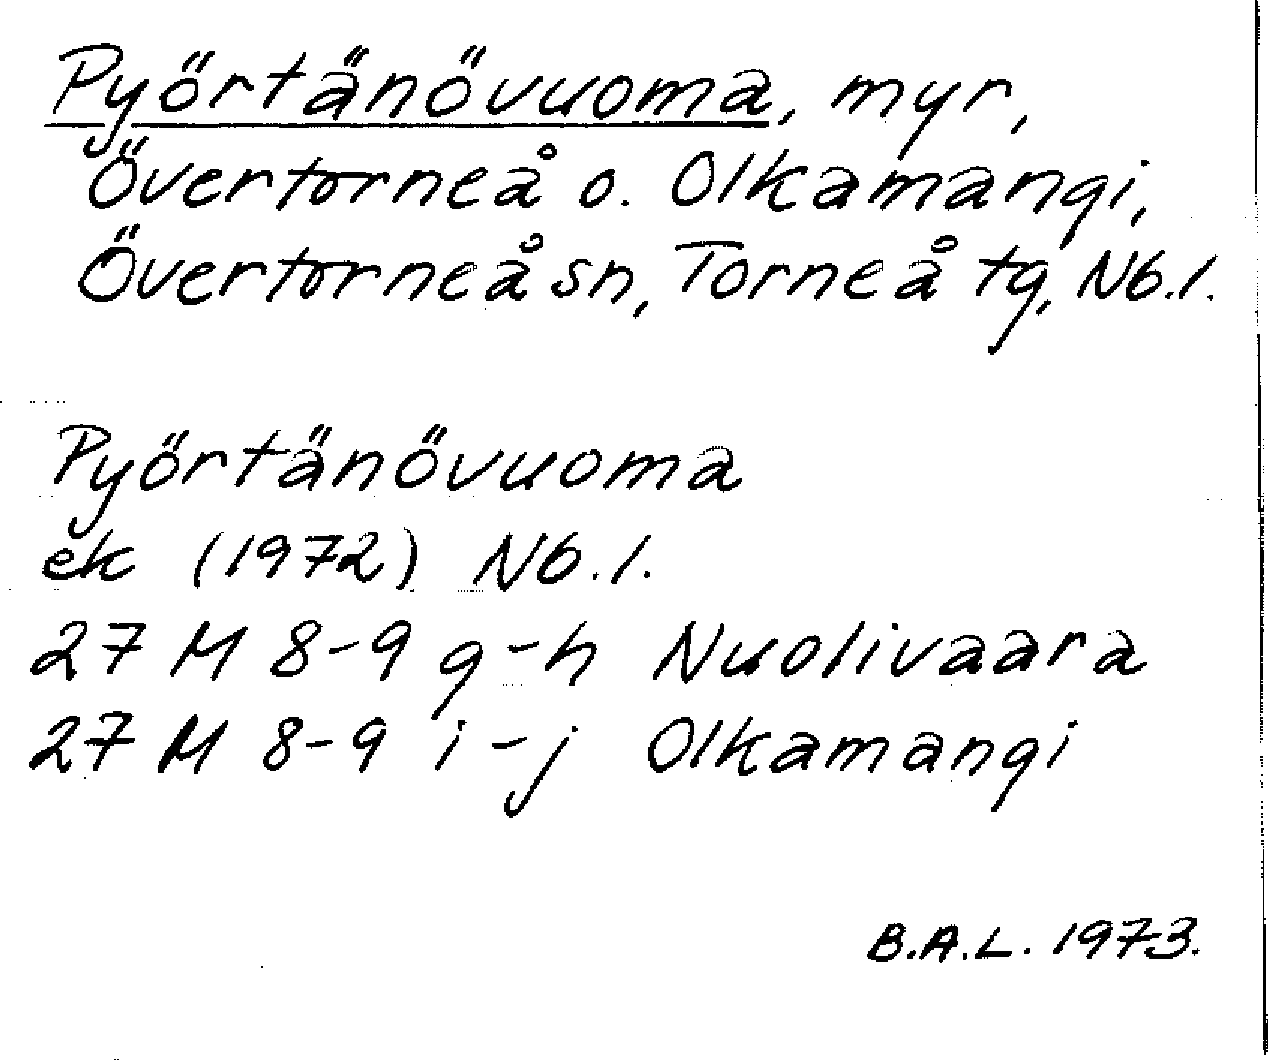 Pyörtänövuoma, myr,
Övertorneå o. Olkamangi,
Övertorneå sn, Torneå tg, Nb.l.
Pyörtänövuoma
ek (1972) Nb.l.
27 M 8-9 g-h Nuolivaara
27 M 8-9 i-j Olkamangi
B.A.L. 1973.